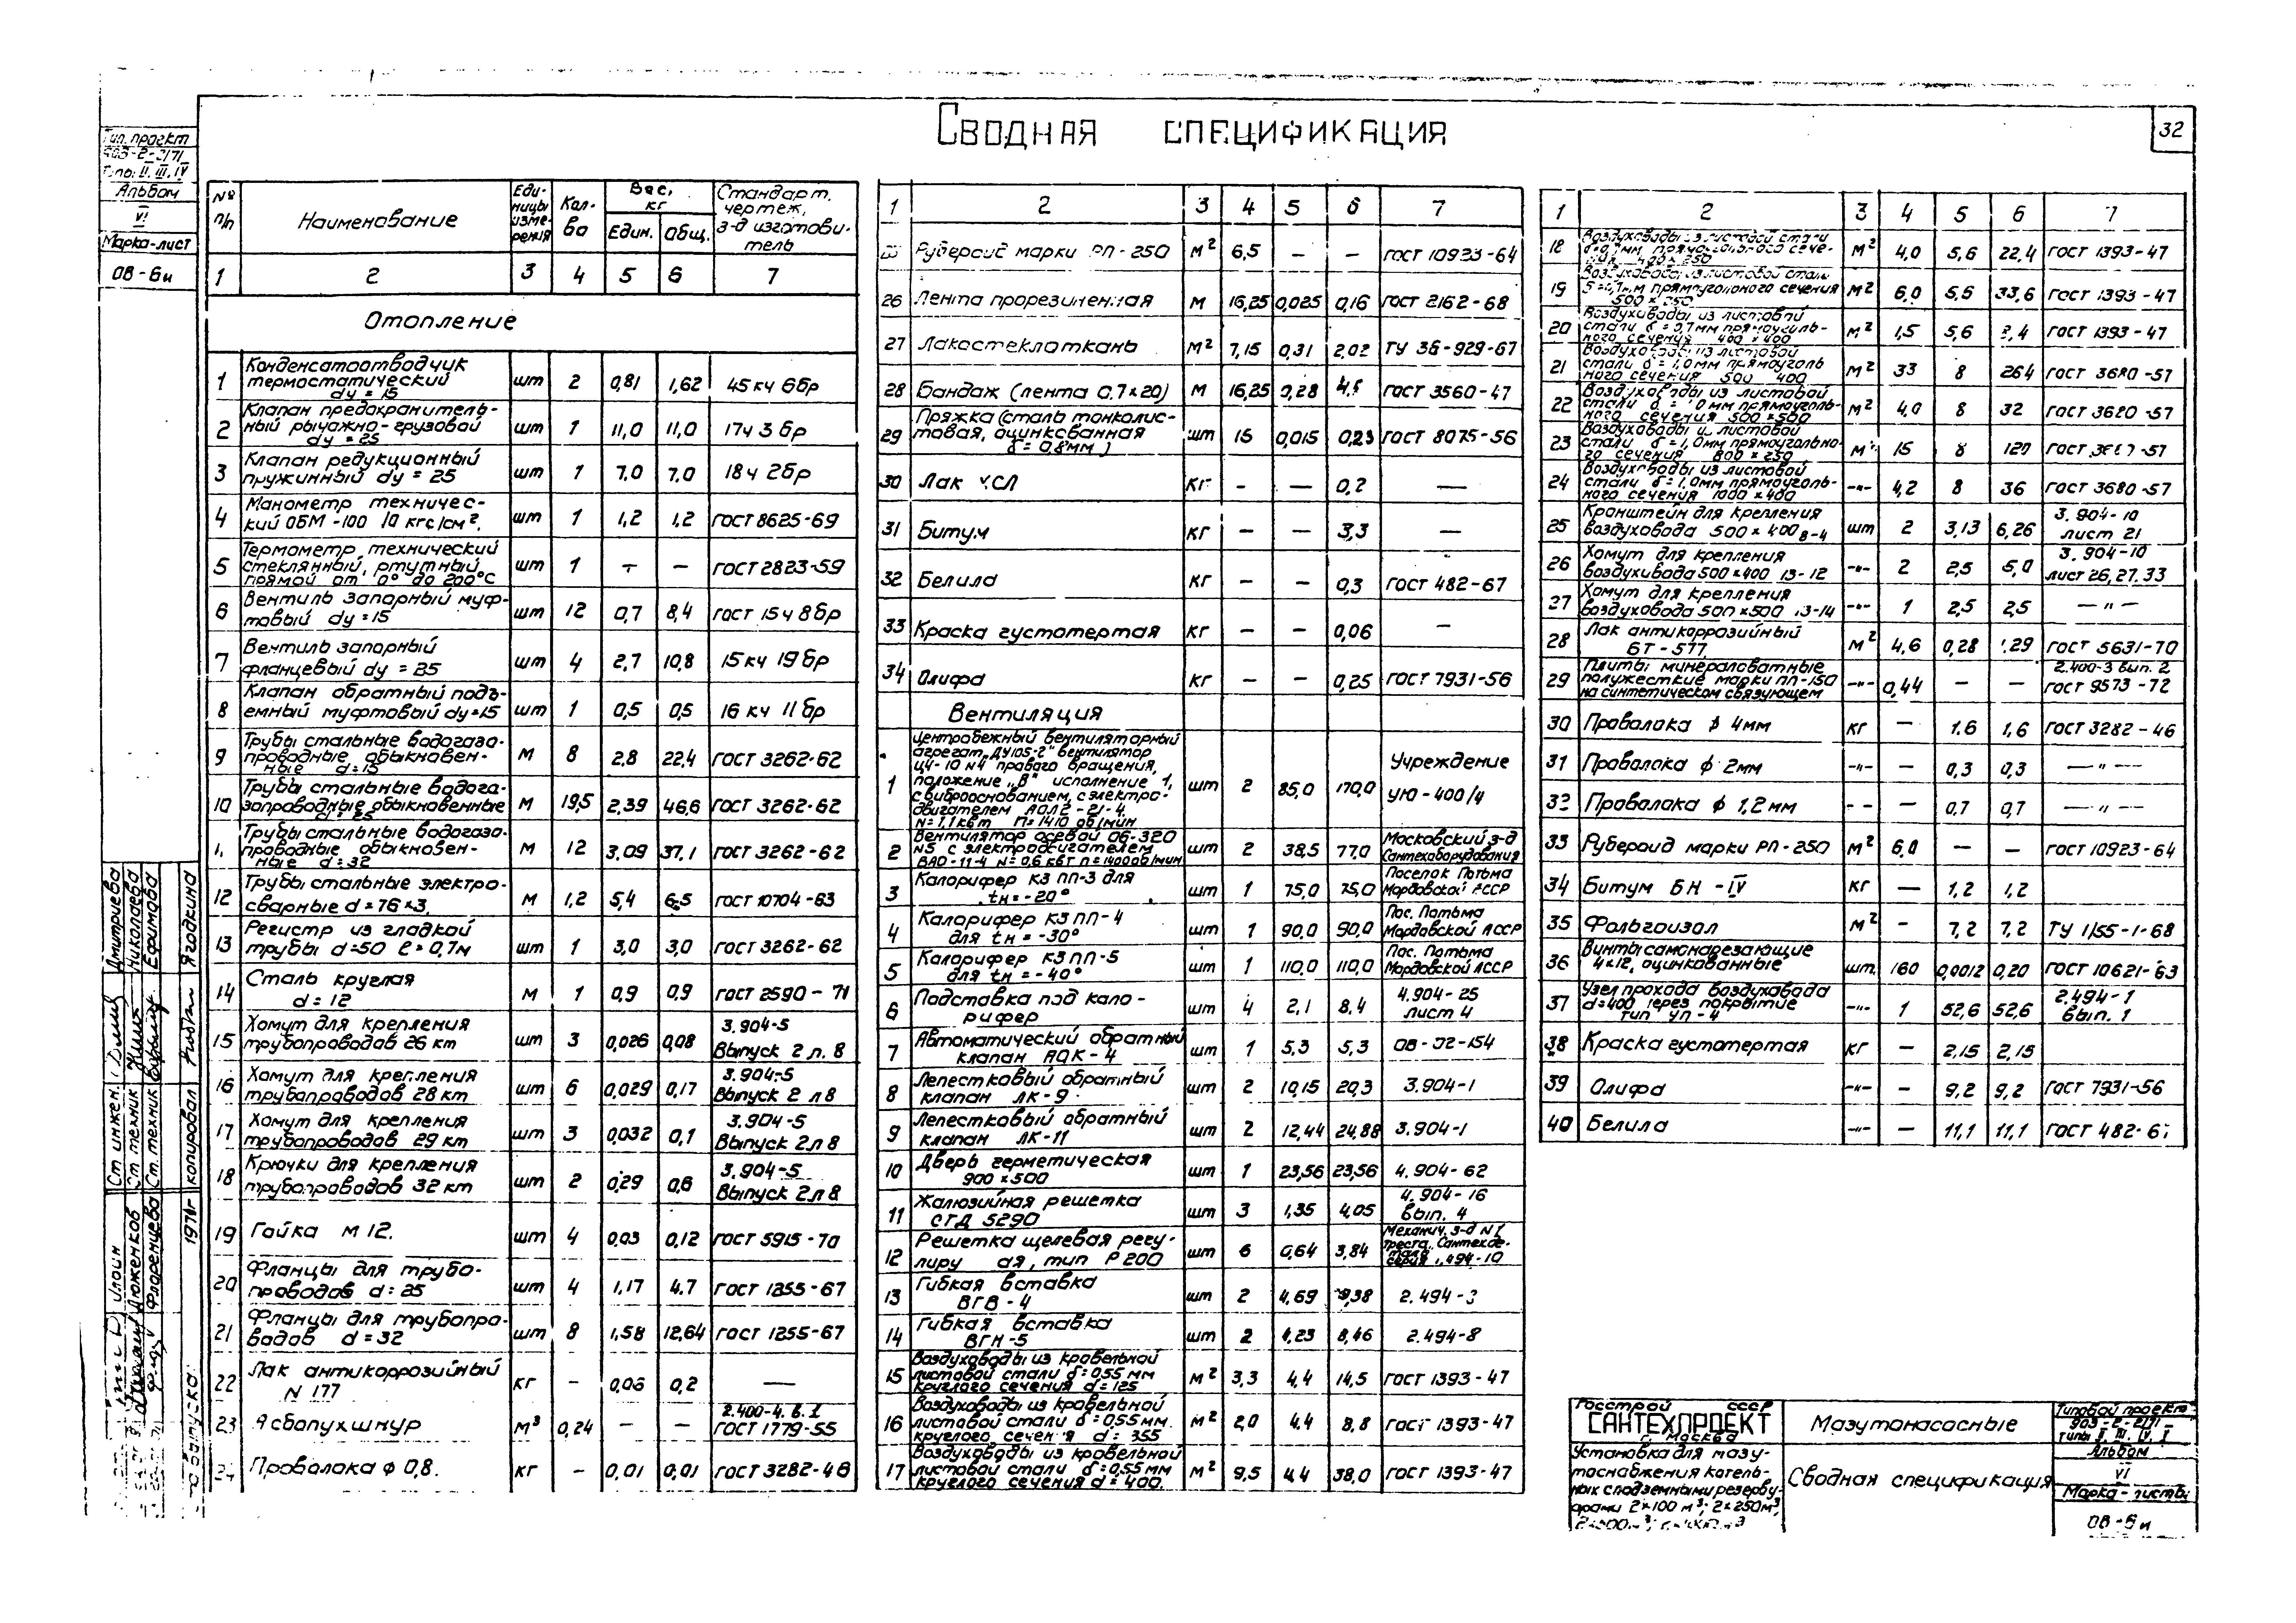 Сводная спецификация
32
Тип. проект
903-2-2/71
Типы II, III, IV
Альбом
VI
Марка-лист
ОВ-6и
№ п/п | Наименование | Единицы измерения | Кол-во | Вес, кг Един. | Общ. | Стандарт, чертеж, з-д изготовитель
1 2 3 4 5 6 7
Отопление
1 Конденсатоотводчик термостатический dу = 15 шт 2 0,81 1,62 45 кч 6бр
2 Клапан предохранительный рычажно-грузовой dу = 25 шт 1 11,0 11,0 17ч 3 бр
3 Клапан редукционный пружинный dу = 25 шт 1 7,0 7,0 18ч 2бр
4 Манометр технический ОБМ-100 10 кгс/см². шт 1 1,2 1,2 ГОСТ 8625-69
5 Термометр технический стеклянный, ртутный прямой от 0° до 200°С шт 1 — — ГОСТ 2823-59
6 Вентиль запорный муфтовый dу=15 шт 12 0,7 8,4 ГОСТ 15ч 8бр
7 Вентиль запорный фланцевый dу = 25 шт 4 2,7 10,8 15 кч 19 бр
8 Клапан обратный подъемный муфтовый dу=15 шт 1 0,5 0,5 16 кч 11 бр
9 Трубы стальные водогазопроводные обыкновенные d=15 М 8 2,8 22,4 ГОСТ 3262-62
10 Трубы стальные водогазопроводные обыкновенные d=25 М 19,5 2,39 46,6 ГОСТ 3262-62
Трубы стальные водогазопроводные обыкновенные d=32 М 12 3,09 37,1 ГОСТ 3262-62
12 Трубы стальные электросварные d=76×3. М 1,2 5,4 6,5 ГОСТ 10704-63
13 Регистр из гладкой трубы d=50 ℓ=0,7м шт 1 3,0 3,0 ГОСТ 3262-62
14 Сталь круглая d=12 М 1 0,9 0,9 ГОСТ 2590-71
15 Хомут для крепления трубопроводов 26 км шт 3 0,026 0,08 3.904-5 Выпуск 2 л. 8
16 Хомут для крепления трубопроводов 28 км шт 6 0,029 0,17 3.904-5 Выпуск 2 л 8
17 Хомут для крепления трубопроводов 29 км шт 3 0,032 0,1 3.904-5 Выпуск 2 л 8
18 Крючки для крепления трубопроводов 32 км шт 2 0,29 0,6 3.904-5 Выпуск 2 л 8
19 Гайка М 12. шт 4 0,03 0,12 ГОСТ 5915-70
20 Фланцы для трубопроводов d=25 шт 4 1,17 4,7 ГОСТ 1255-67
21 Фланцы для трубопроводов d=32 шт 8 1,58 12,64 ГОСТ 1255-67
22 Лак антикоррозийный N 177 кг - 0,06 0,2 —
23 Асбопухшнур М³ 0,24 — — 2.400-4. В.1 ГОСТ 1779-55
24 Проволока ф 0,8. кг - 0,01 0,01 ГОСТ 3282-46
1 2 3 4 5 6 7
Рубероид марки РП-250 М² 6,5 — — ГОСТ 10923-64
26 Лента прорезиненная М 16,25 0,025 0,16 ГОСТ 2162-68
27 Лакостеклоткань М² 7,15 0,31 2,02 ТУ 36-929-67
28 Бандаж (лента 0.7×20) М 16,25 0,28 4,5 ГОСТ 3560-47
29 Пряжка (сталь тонколистовая, оцинкованная δ=0,8мм) шт 15 0,015 0,23 ГОСТ 8075-56
30 Лак УСЛ кг - — 0,2 —
31 Битум кг — — 3,3 —
32 Белила кг — — 0,3 ГОСТ 482-67
33 Краска густотертая кг — — 0,06 —
34 Олифа кг — — 0,25 ГОСТ 7931-56
Вентиляция
1 Центробежный вентиляторный агрегат „ДУ105-2" вентилятор Ц4-70 N4 правого вращения, положение „В" исполнение 1, с виброоснованием, с электродвигателем АОЛ2-21-4. N=1,1 квт n=1410 об/мин шт 2 85,0 170,0 Учреждение УЮ-400/4
2 Вентилятор осевой 06-320 N5 с электродвигателем ВАО-11-4 N=0,6 квт n=1400об/мин шт 2 38,5 77,0 Московский з-д Сантехоборудования
3 Калорифер КЗ ПП-3 для tн=-20° шт 1 75,0 75,0 Поселок Потьма Мордовской АССР
4 Калорифер КЗ ПП-4 для tн=-30° шт 1 90,0 90,0 Пос. Потьма Мордовской АССР
5 Калорифер КЗ ПП-5 для tн=-40° шт 1 110,0 110,0 Пос. Потьма Мордовской АССР
6 Подставка под калорифер шт 4 2,1 8,4 4.904-25 лист 4
7 Автоматический обратный клапан АОК-4 шт 1 5,3 5,3 ОВ-02-154
8 Лепестковый обратный клапан ЛК-9 шт 2 10,15 20,3 3.904-1
9 Лепестковый обратный клапан ЛК-11 шт 2 12,44 24,88 3.904-1
10 Дверь герметическая 900×500 шт 1 23,56 23,56 4.904-62
11 Жалюзийная решетка СТД 5290 шт 3 1,35 4,05 4.904-16 вып. 4
12 Решетка щелевая регулиру ая, тип Р200 шт 6 0,64 3,84 Механич. з-д N1 треста „Сантехдеталь серия 1.494-10
13 Гибкая вставка ВГВ-4 шт 2 4,69 9,38 2.494-3
14 Гибкая вставка ВГН-5 шт 2 4,23 8,46 2.494-8
15 Воздуховоды из кровельной листовой стали δ=0,55 мм круглого сечения d=125 М² 3,3 4,4 14,5 ГОСТ 1393-47
16 Воздуховоды из кровельной листовой стали δ=0,55 мм. круглого сечения d=355 М² 2,0 4,4 8,8 ГОСТ 1393-47
17 Воздуховоды из кровельной листовой стали δ=0,55 мм круглого сечения d=400. М² 9,5 4,4 38,0 ГОСТ 1393-47
1 2 3 4 5 6 7
18 Воздуховоды из листовой стали δ=0,7мм прямоугольного сечения 400×250 М² 4,0 5,6 22,4 ГОСТ 1393-47
19 Воздуховоды из листовой стали δ=0,7мм прямоугольного сечения 500×250 М² 6,0 5,6 33,6 ГОСТ 1393-47
20 Воздуховоды из листовой стали δ=0,7мм прямоугольного сечения 400×400 М² 1,5 5,6 8,4 ГОСТ 1393-47
21 Воздуховоды из листовой стали δ=1,0мм прямоугольного сечения 500 400 М² 33 8 264 ГОСТ 3680-57
22 Воздуховоды из листовой стали δ=1,0мм прямоугольного сечения 500×500 М² 4,0 8 32 ГОСТ 3680-57
23 Воздуховоды из листовой стали δ=1,0мм прямоугольного сечения 800×250 М² 15 8 120 ГОСТ 3680-57
24 Воздуховоды из листовой стали δ=1,0мм прямоугольного сечения 1000×400 -"- 4,2 8 36 ГОСТ 3680-57
25 Кронштейн для крепления воздуховода 500×400 В-4 шт 2 3,13 6,26 3.904-10 лист 21
26 Хомут для крепления воздуховода 500×400 13-12 -"- 2 2,5 5,0 3.904-10 лист 26,27,33
27 Хомут для крепления воздуховода 500×500 13-14 -"- 1 2,5 2,5 —"—
28 Лак антикоррозийный БТ-577 М² 4,6 0,28 1,29 ГОСТ 5631-70
29 Плиты минераловатные полужесткие марки ПП-150 на синтетическом связующем -"- 0,44 — — 2.400-3 вып. 2 ГОСТ 9573-72
30 Проволока ф 4мм кг — 1.6 1,6 ГОСТ 3282-46
31 Проволока ф 2мм -"- — 0,3 0,3 —"—
32 Проволока ф 1,2мм - - — 0,7 0,7 —"—
33 Рубероид марки РП-250 М² 6,0 — — ГОСТ 10923-64
34 Битум БН-IV кг — 1,2 1,2
35 Фольгоизол М² - 7,2 7,2 ТУ 1155-1-68
36 Винты самонарезающие 4×12, оцинкованные шт. 160 0,0012 0,20 ГОСТ 10621-63
37 Узел прохода воздуховода d=400 через покрытие тип УП-4 -"- 1 52,6 52,6 2.494-1 вып. 1
38 Краска густотертая кг — 2,15 2,15
39 Олифа -"- - 9,2 9,2 ГОСТ 7931-56
40 Белила -"- — 11,1 11,1 ГОСТ 482-67
Ст инжен. Дмитриева
Ст техник Николаева
Ст. техник Ефимтова
копировал Ягодкина
Дюженков
Флоренцева
Госстрой СССР
САНТЕХПРОЕКТ
г. Москва
Мазутонасосные
Типовой проект
903-2-2/71
типы II, III, IV, V
Установка для мазутоснабжения котельных с подземными резервуарами 2×100 м³; 2×250м³,
Сводная спецификация
Альбом
VI
Марка-листы
ОВ-6и